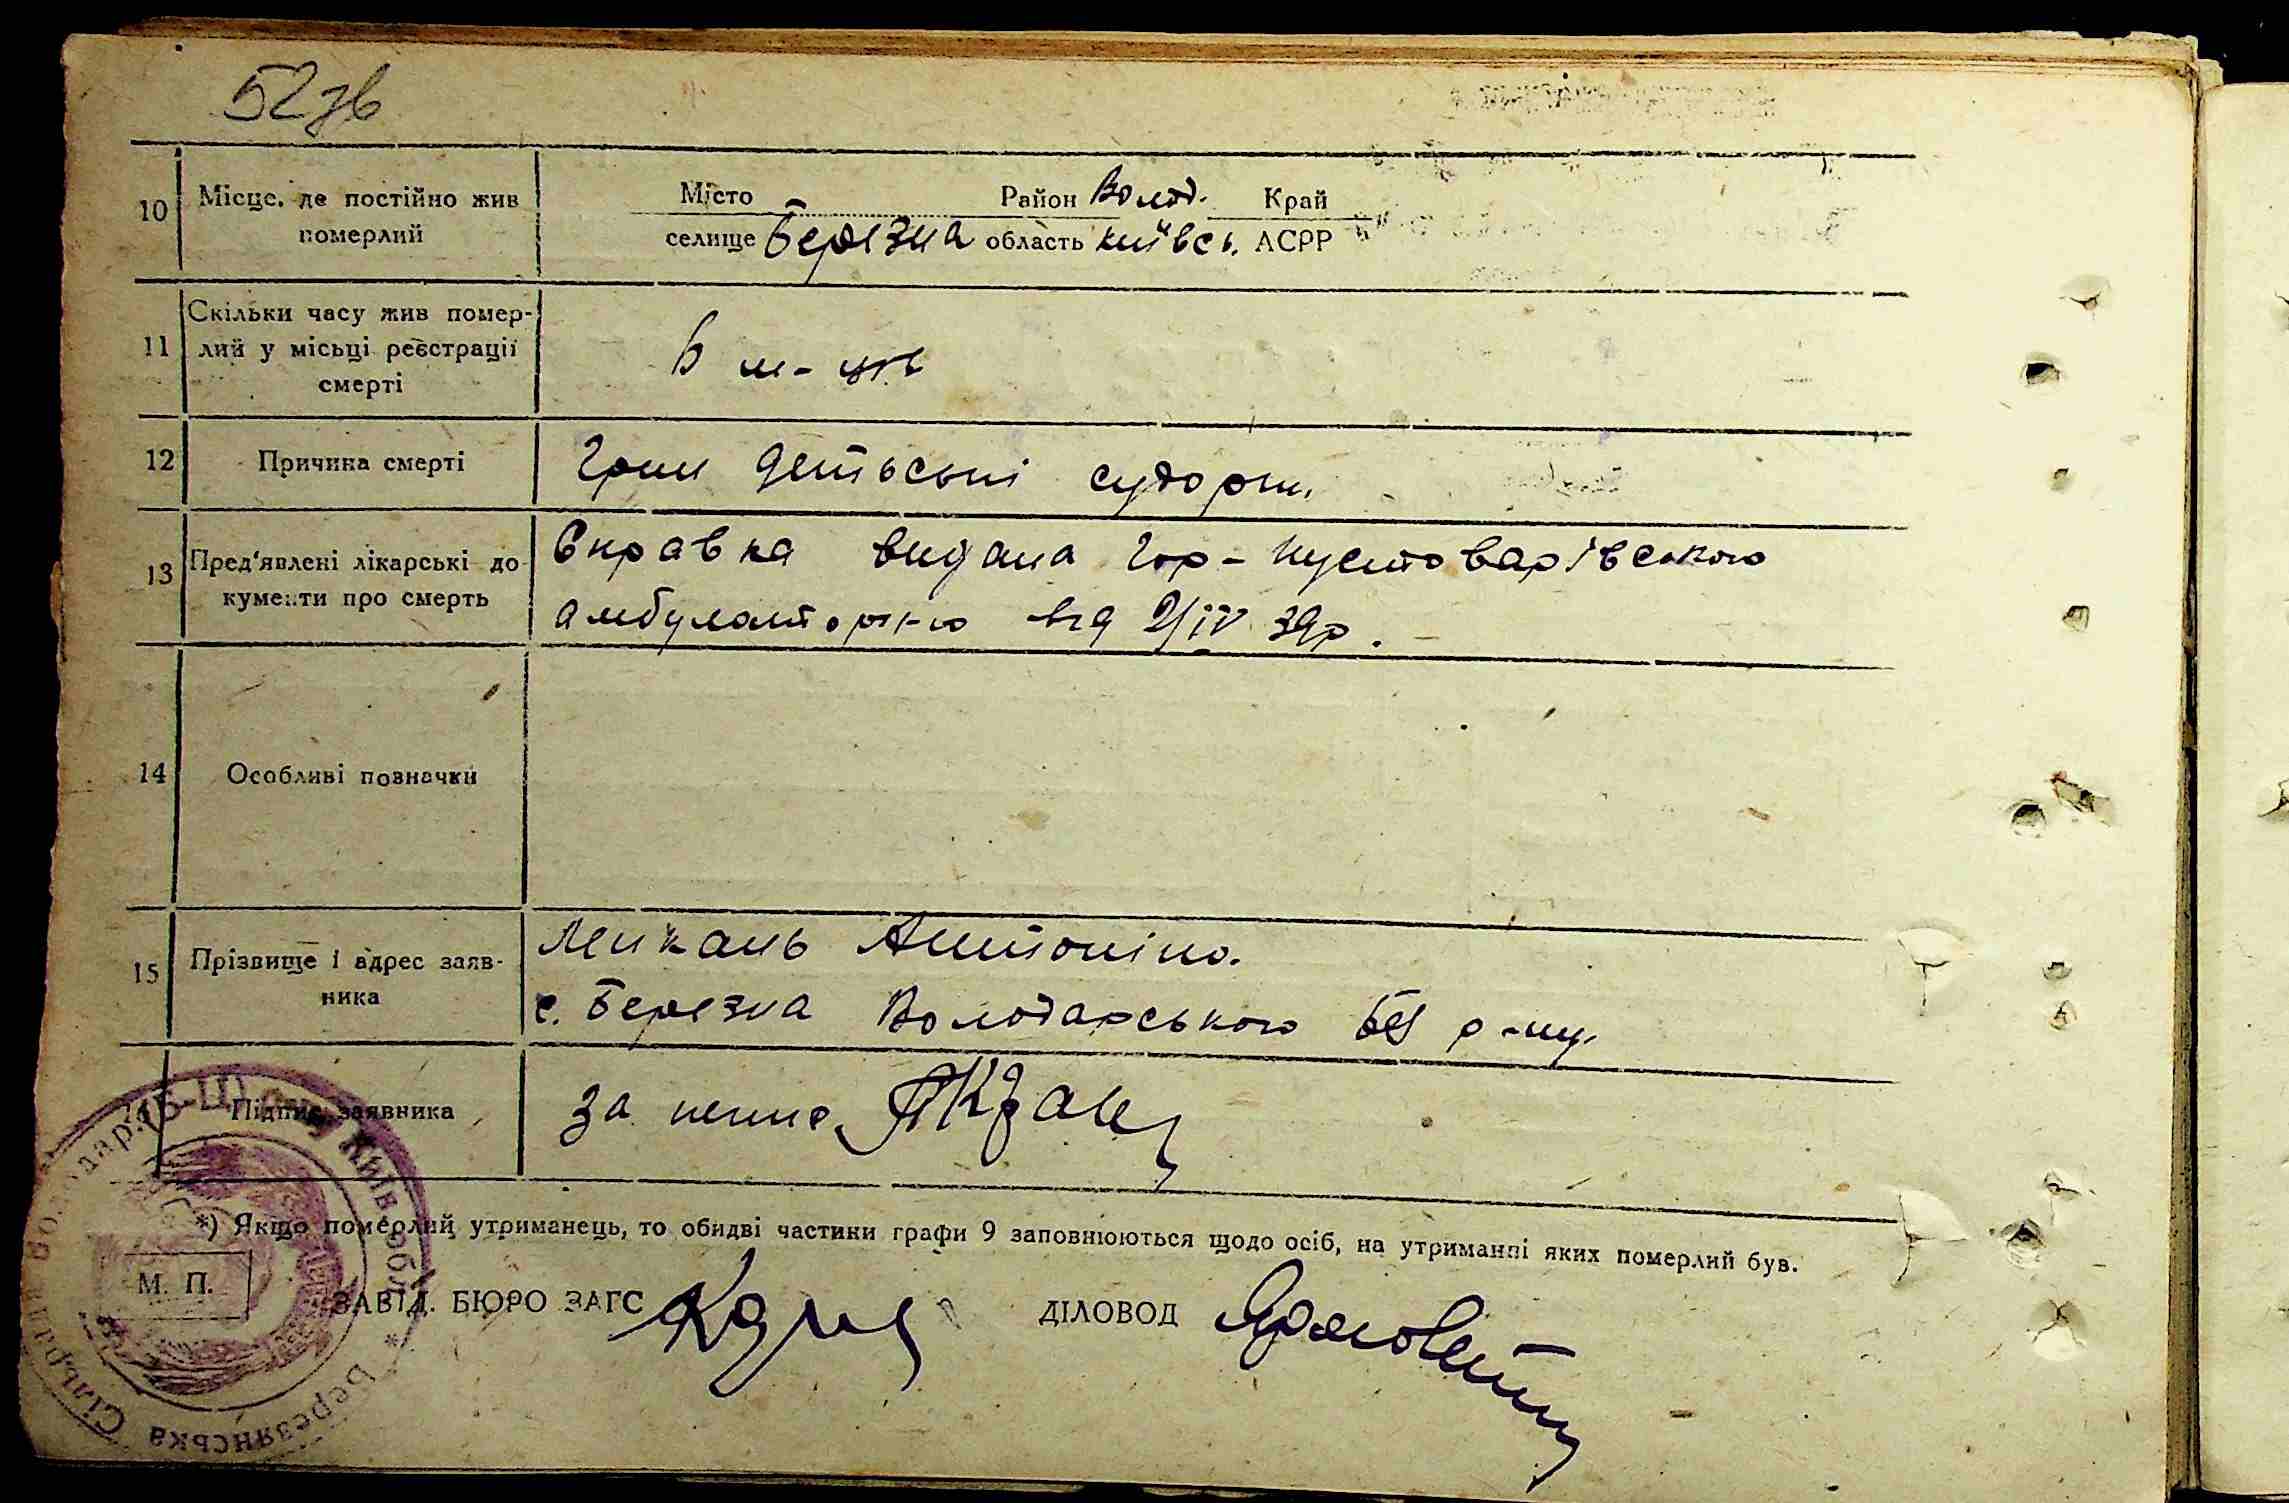 52зв
10 Місце, де постійно жив померлий
Місто Район Волод. Край
селище Березна область київсь. АСРР
11 Скільки часу жив помер-
лий у місьці реєстрації
смерті
6 м-ців
12 Причина смерті
Грип детьські судорги.
13 Пред'явлені лікарські до-
кументи про смерть
Справка видана Гор-Пустоварівською
амбулаторією від 2/IV 39р.
14 Особливі позначки
15 Прізвище і адрес заяв-
ника
Антоніна.
с. Березна Володарського БЦ р-ну.
16 Підпис заявника
за
*) Якщо померлий утриманець, то обидві частини графи 9 заповнюються щодо осіб, на утриманні яких померлий був.
М. П.
ЗАВІД. БЮРО ЗАГС
ДІЛОВОД
Володар. (Б-Ц) р-ну Київ обл. * Березянська Сільрада